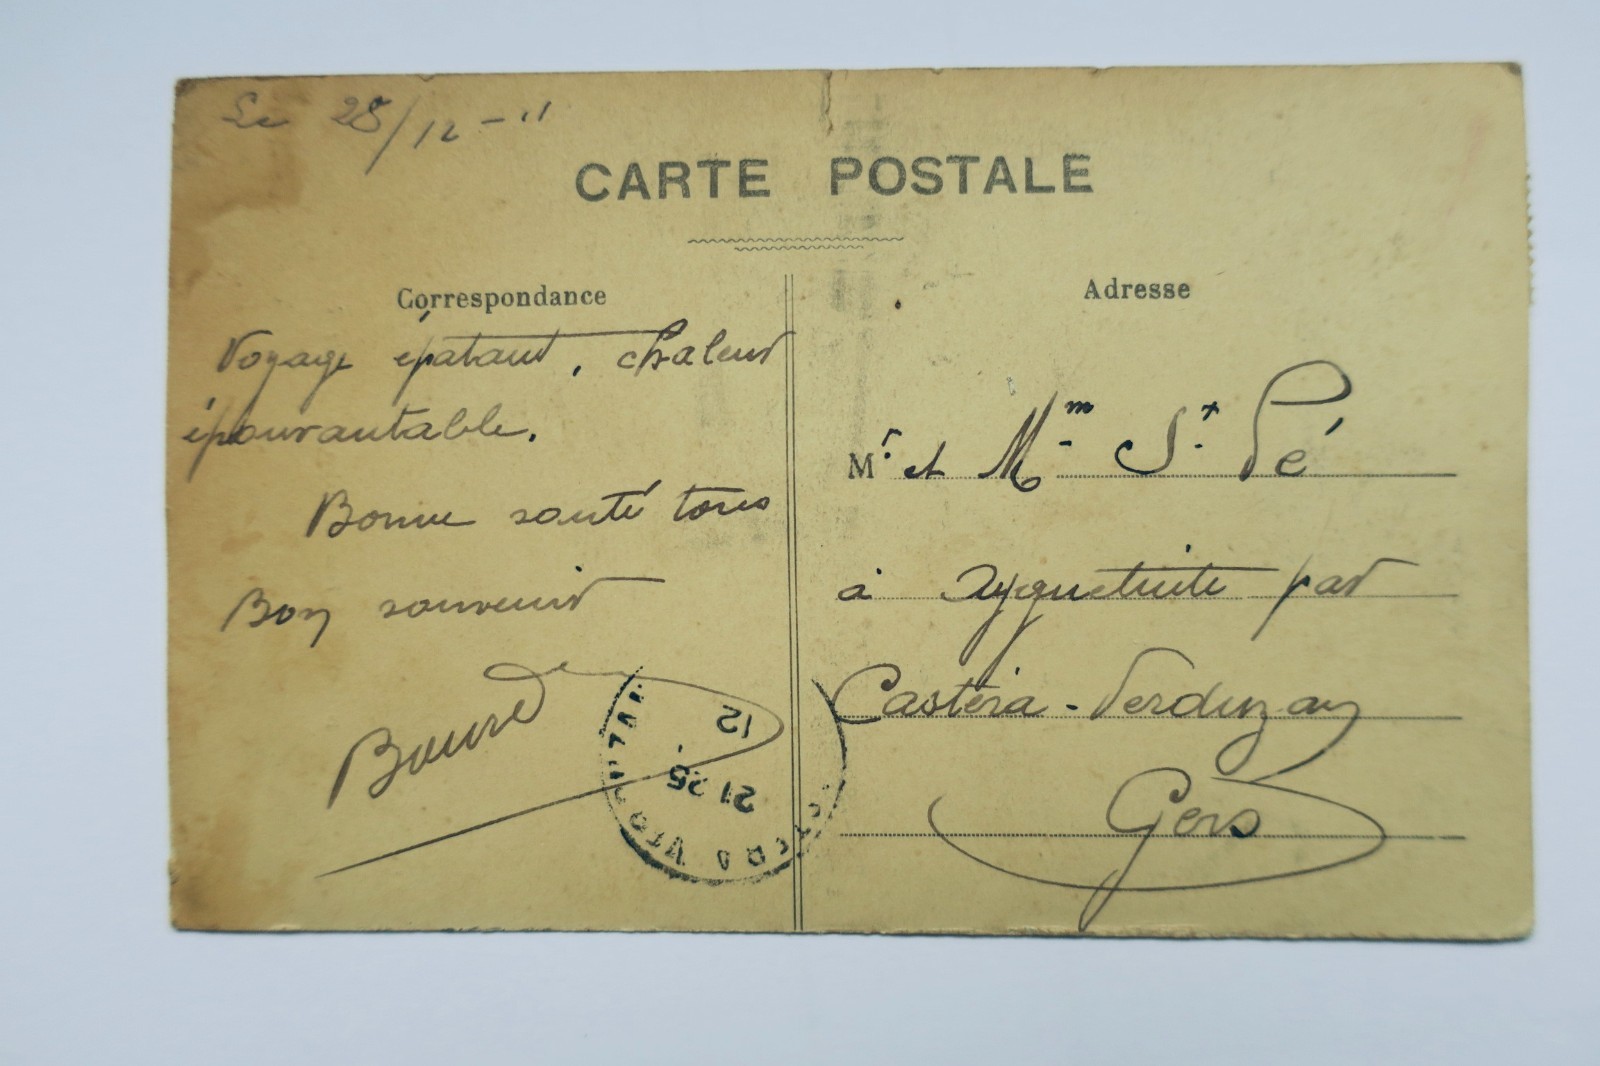 Le 28/12-11
CARTE POSTALE
Correspondance
Adresse
Voyage épatant, chaleur
épouvantable.
Bonne santé tous
Bon souvenir
Mr. et Mm. St. Pé
à Ayguetinte par
Castéra-Verduzan
Gers
21 25
12